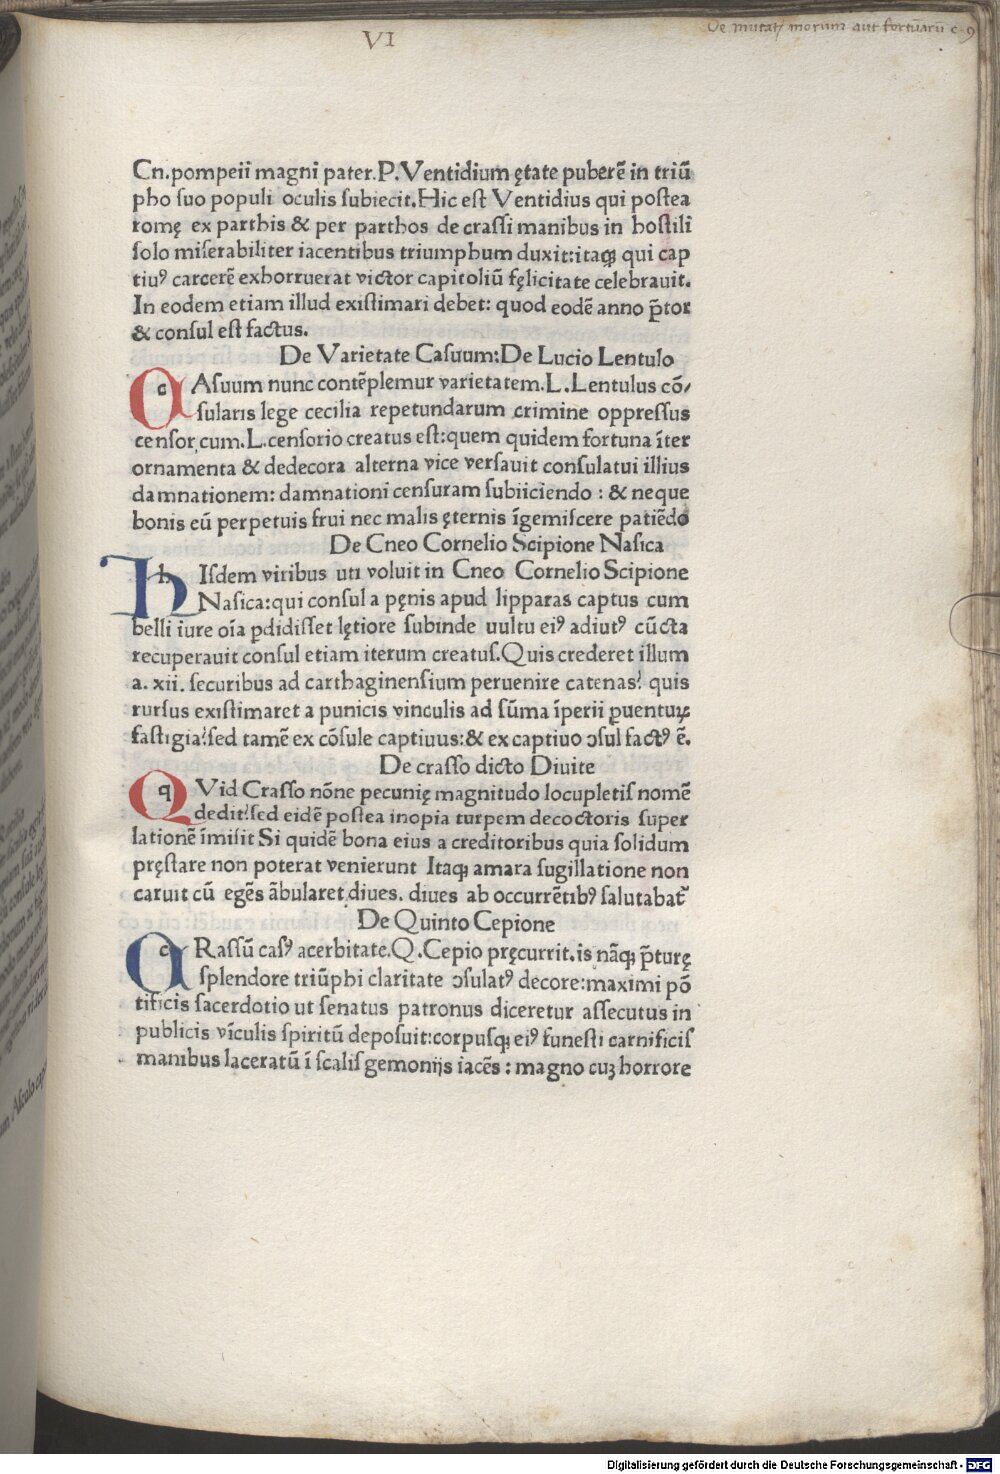 VI
De mutat morum aut fortunarū c 9
Cn.pompeii magni pater.P.Ventidium ętate puberē in triū
pho suo populi oculis subiecit.Hic est Ventidius qui postea
romę ex parthis & per parthos de crassi manibus in hostili
solo miserabiliter iacentibus triumphum duxit:itaqꝫ qui cap
tiuꝰ carcerē exhorruerat victor capitoliū fęlicitate celebrauit.
In eodem etiam illud existimari debet: quod eodē anno p̄tor
& consul est factus.
De Varietate Casuum:De Lucio Lentulo
c Asuum nunc contēplemur varietatem.L.Lentulus cō/
sularis lege cecilia repetundarum crimine oppressus
censor cum.L.censorio creatus est:quem quidem fortuna īter
ornamenta & dedecora alterna vice versauit consulatui illius
damnationem: damnationi censuram subiiciendo : & neque
bonis eū perpetuis frui nec malis ęternis īgemiscere patiēdo
De Cneo Cornelio Scipione Nasica
h Isdem viribus uti voluit in Cneo Cornelio Scipione
Nasica:qui consul a pęnis apud lipparas captus cum
belli iure oīa ꝑdidisset lętiore subinde uultu eiꝰ adiutꝰ cūcta
recuperauit consul etiam iterum creatus.Quis crederet illum
a. xii. securibus ad carthaginensium peruenire catenas? quis
rursus existimaret a punicis vinculis ad sūma īperii ꝑuentuꝝ
fastigia?sed tamē ex cōsule captiuus:& ex captiuo ↄsul factꝰ ē.
De crasso dicto Diuite
q Vid Crasso nōne pecunię magnitudo locupletis nomē
dedit?sed eidē postea inopia turpem decoctoris super
lationē īmisit Si quidē bona eius a creditoribus quia solidum
pręstare non poterat venierunt Itaqꝫ amara sugillatione non
caruit cū egēs ābularet,diues. diues ab occurrētibꝰ salutabat᷑
De Quinto Cepione
c Rassū casꝰ acerbitate.Q.Cepio pręcurrit.is nāqꝫ p̄turę
splendore triūphi claritate ↄsulatꝰ decore:maximi pō
tificis sacerdotio ut senatus patronus diceretur assecutus in
publicis vīculis spiritū deposuit:corpusqꝫ eiꝰ funesti carnificis
manibus laceratū ī scalis gemoniis iacēs : magno cuꝫ horrore
Digitalisierung gefördert durch die Deutsche Forschungsgemeinschaft - DFG